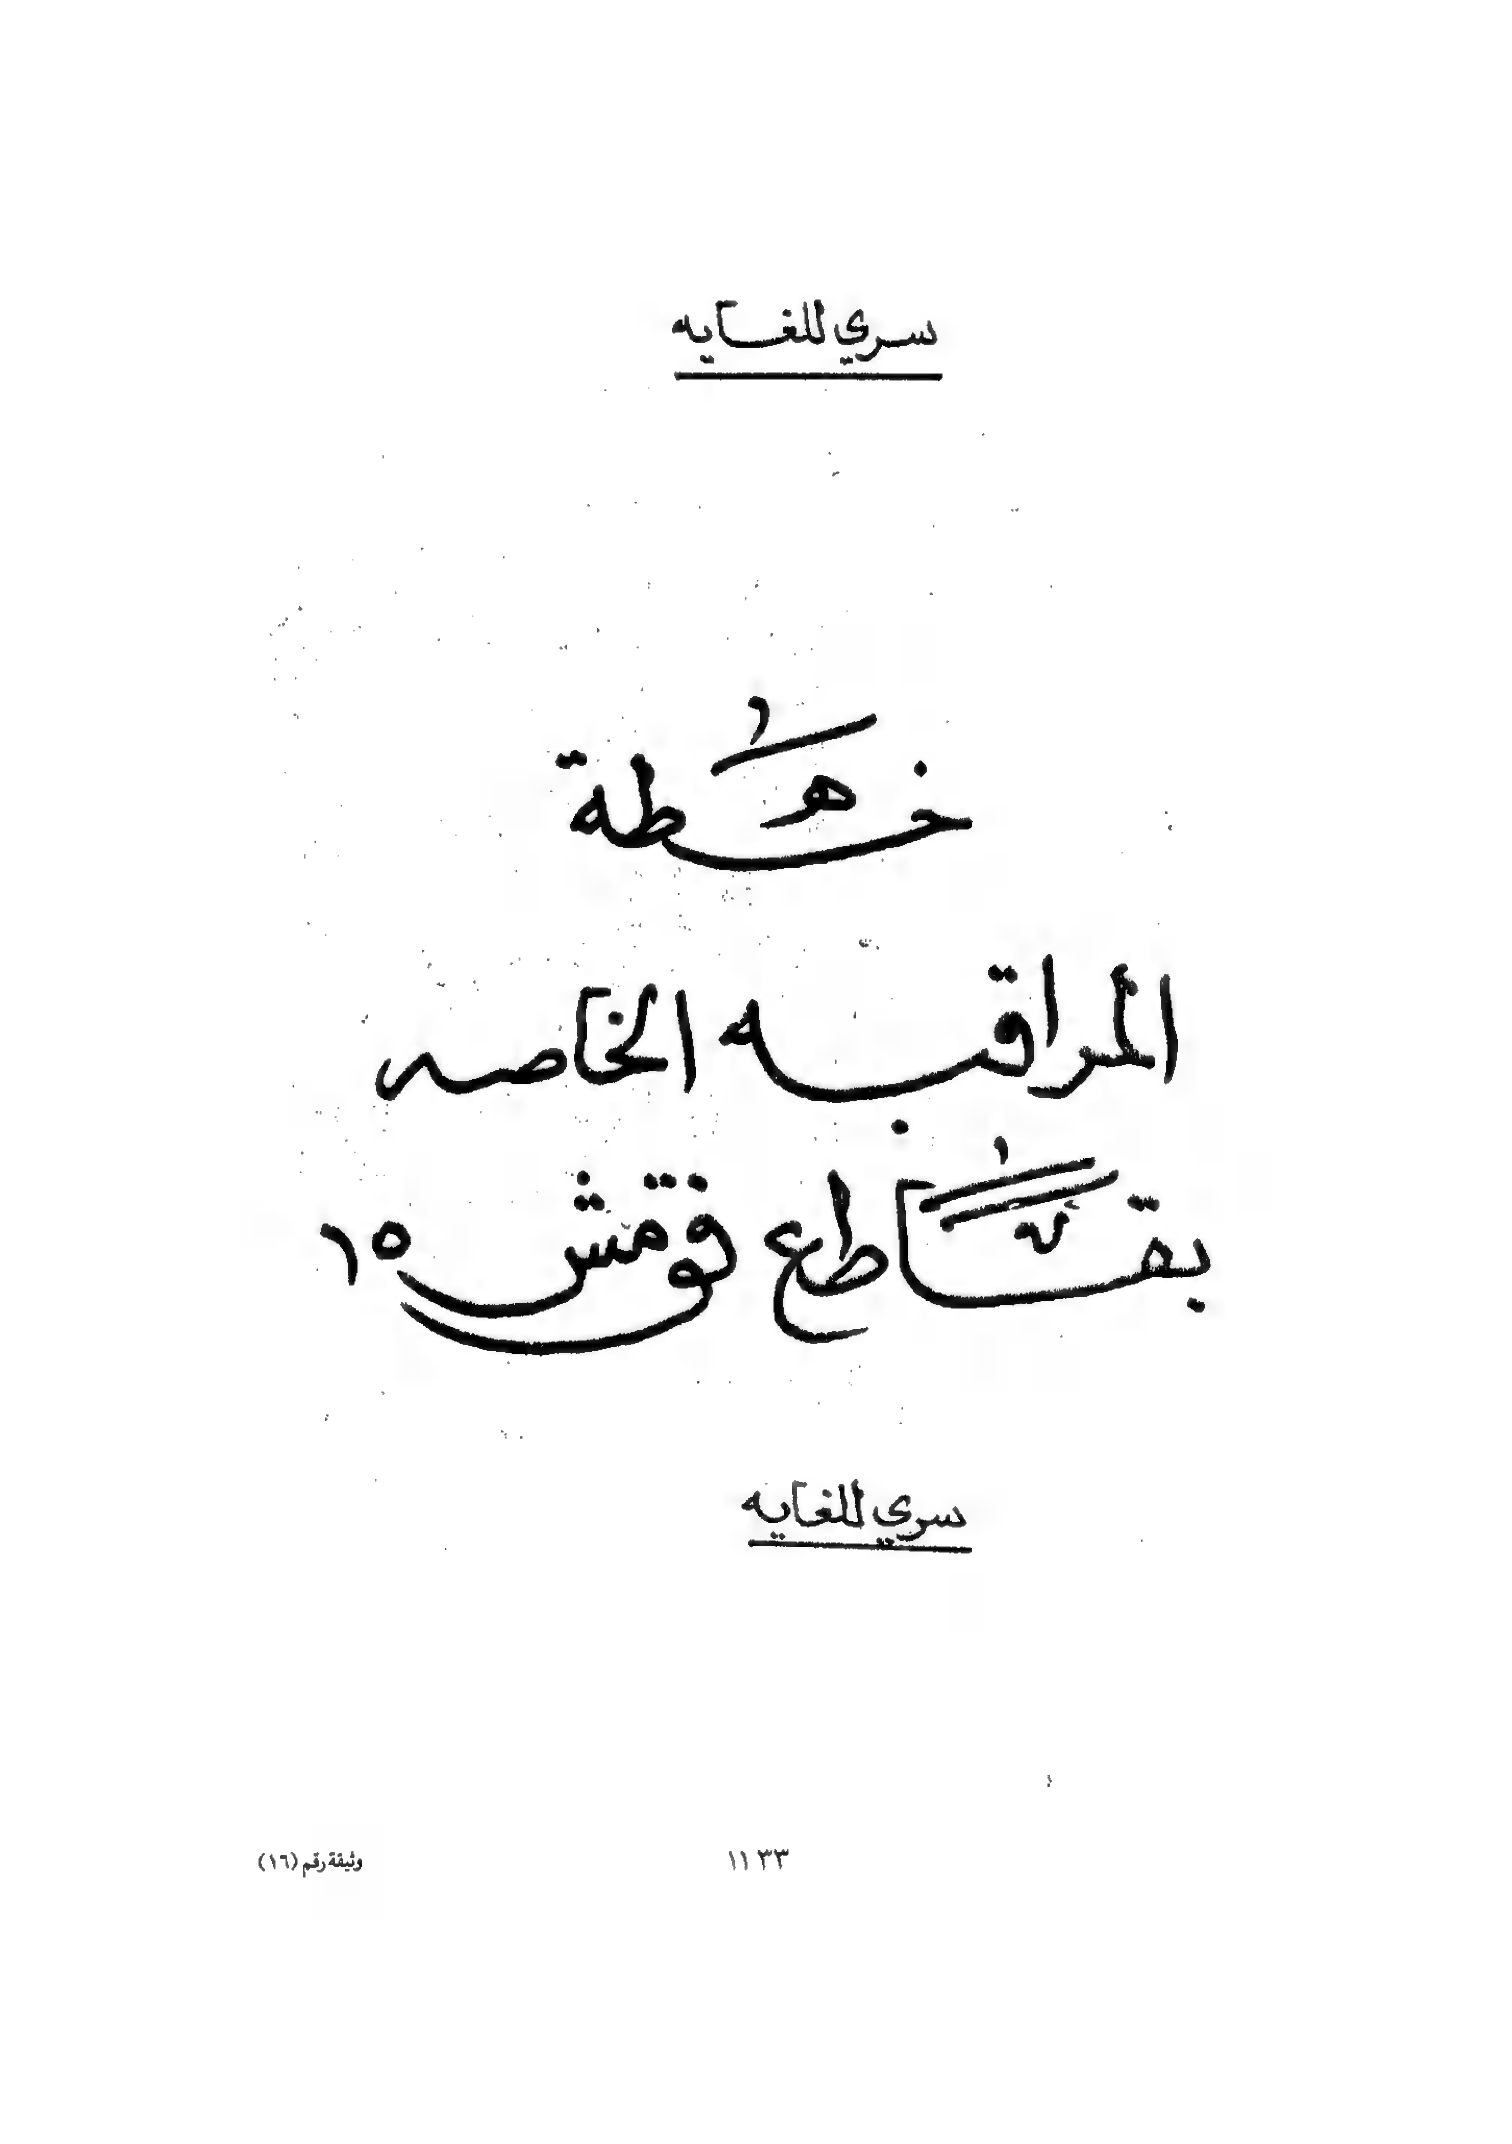 سري للغايه
خطة
المراقبه الخاصه
بقاطع فق مش ١٥
سري للغايه
وثيقة رقم (١٦)
١١٣٣